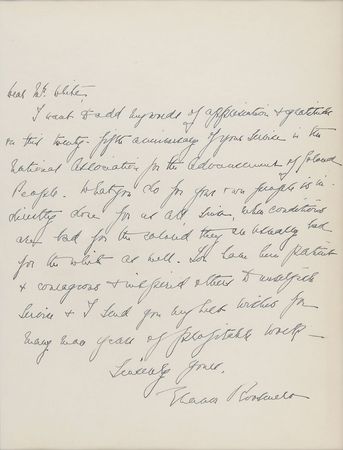 Dear Mr. White:
I want to add my words of appreciation & gratitude
on this twenty-fifth anniversary of your service in the
National Association for the Advancement of Colored
People. What you do for your own people is in-
directly done for us all since, when conditions
are bad for the colored they are usually bad
for the white as well. You have been patient
& courageous & inspired others to unselfish
service & I send you my best wishes for
many more years of profitable work—
Sincerely yours,
Eleanor Roosevelt